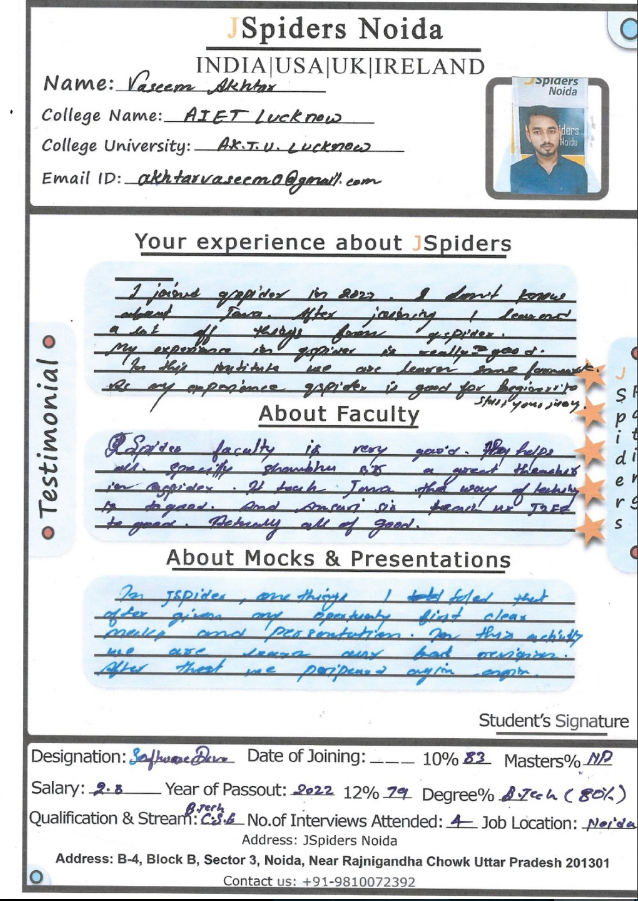 JSpiders Noida
INDIA|USA|UK|IRELAND
Name: Vaseem Akhtar
College Name: AIET Lucknow
College University: AK.T.U. Lucknow
Email ID: akhtarvaseem0@gmail.com
JSpiders
Noida
Your experience about JSpiders
I joined qspider in 2022. I don't know
about Java. After joining I learned
a lot of things form qspider.
My experience in qspider is really good.
In this institute we are learn some
As my experience qspider is good for
start your
Testimonial
JSpiders
About Faculty
JSpider faculty is very good. They helps
all. Specilly Shambhu sir a great
in qspider. It teach Java that way of
is to good. And Ansari sir teach us J2EE
to good. Actually all of good.
About Mocks & Presentations
In JSpider, one things I that
after given any first clear
mocks and persentation. In this activity
we are learn and
After that we again again.
Student's Signature
Designation: Software Date of Joining: _ _ _ 10% 83 Masters% NA
Salary: 2.8 Year of Passout: 2022 12% 79 Degree% B.Tech (80%)
Qualification & Stream: B.Tech C.S.E No.of Interviews Attended: 4 Job Location: Noida
Address: JSpiders Noida
Address: B-4, Block B, Sector 3, Noida, Near Rajnigandha Chowk Uttar Pradesh 201301
Contact us: +91-9810072392